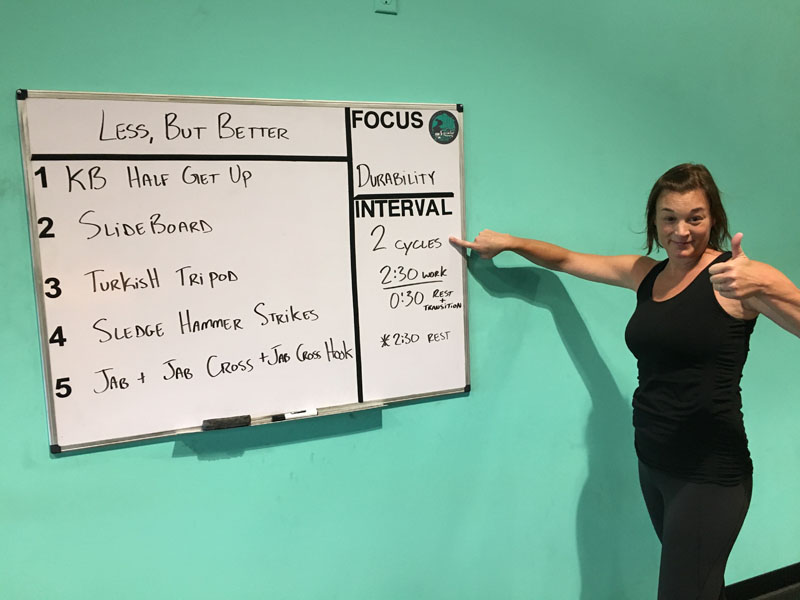 LESS, BUT BETTER
1 KB HALF GET UP
2 SLIDEBOARD
3 TURKISH TRIPOD
4 SLEDGE HAMMER STRIKES
5 JAB + JAB CROSS + JAB CROSS HOOK
FOCUS
DURABILITY
INTERVAL
2 CYCLES
2:30 WORK
0:30 REST + TRANSITION
*2:30 REST